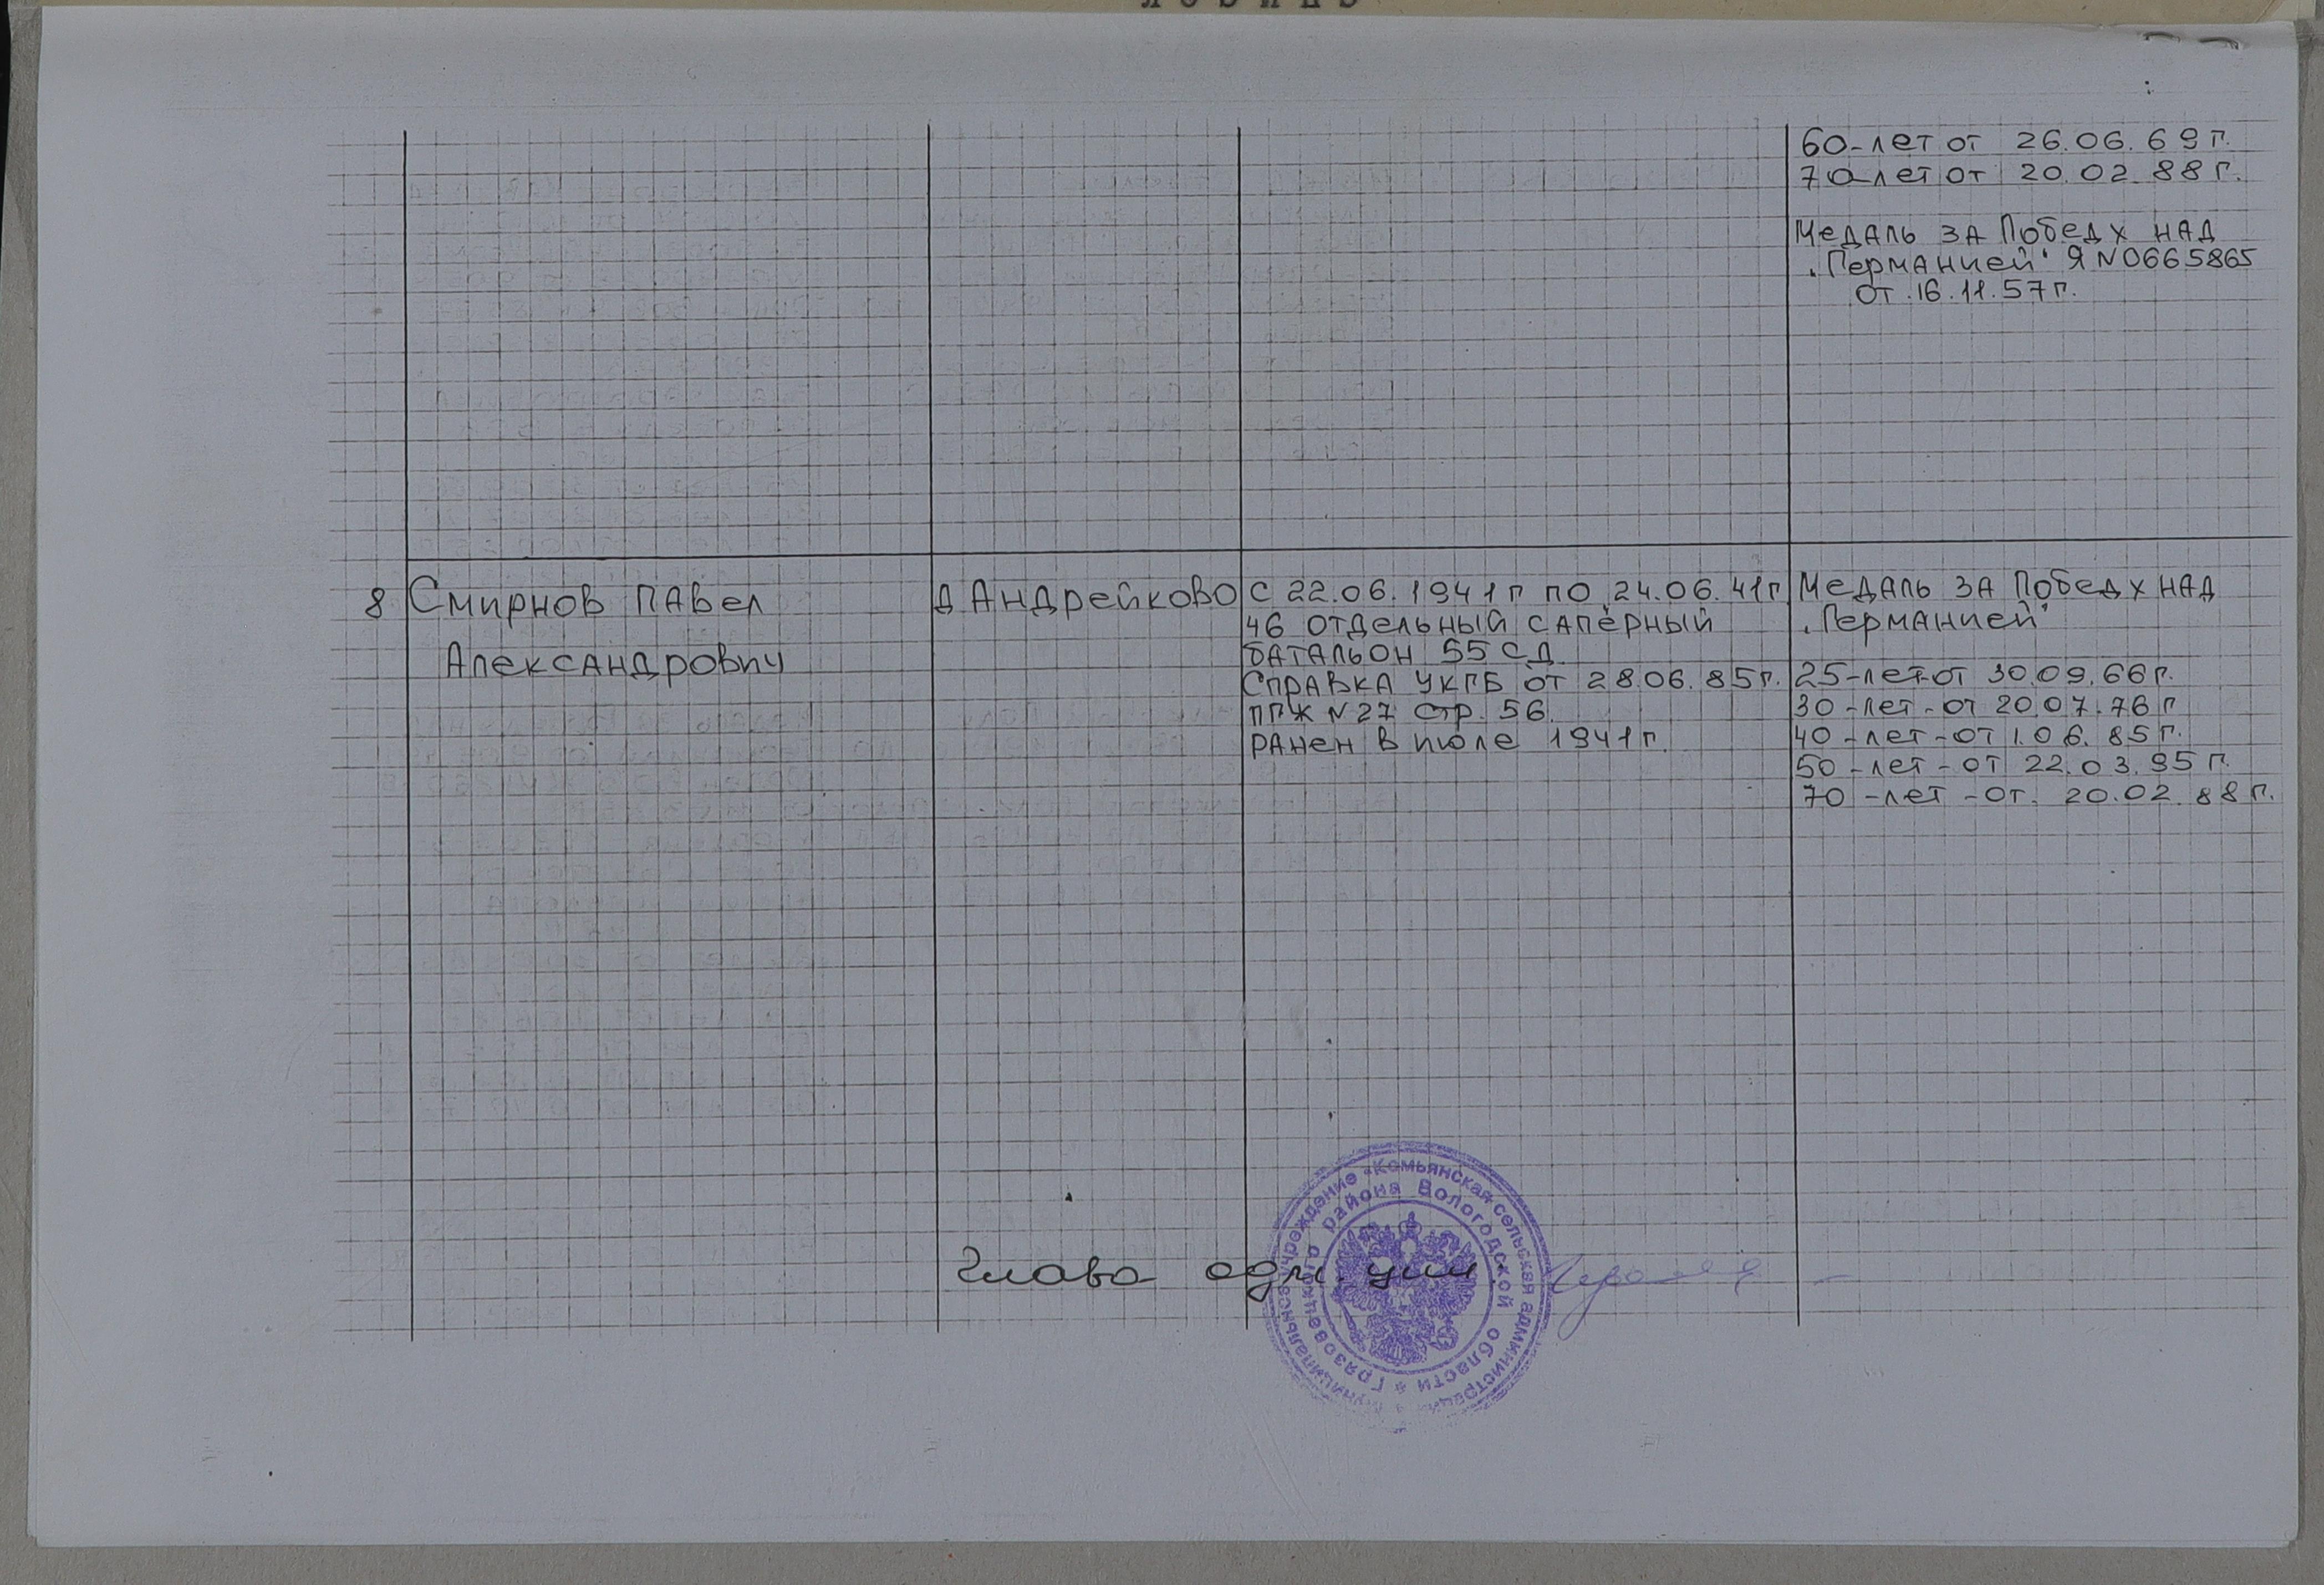 60-лет от 26.06.69г.
70-лет от 20.02 88г.
Медаль за Победу над
"Германией" Я N0665865
от.16.11.57г.
8 Смирнов Павел
Александрович
д Андрейково
с 22.06.1941г по 24.06.41г
46 отдельный сапёрный
батальон 55 СД
Справка УКГБ от 28.06.85г.
ППЖ N27 стр. 56.
ранен в июле 1941г.
Медаль за Победу над
"Германией"
25-лет-от 30.09.66г.
30-лет-от 20.07.76г
40-лет-от 1.06.85г.
50-лет-от 22.03.95г.
70-лет-от. 20.02.88г.
Глава адм.ции
Муниципальное учреждение "Комьянская сельская администрация
Грязовецкого района Вологодской области *